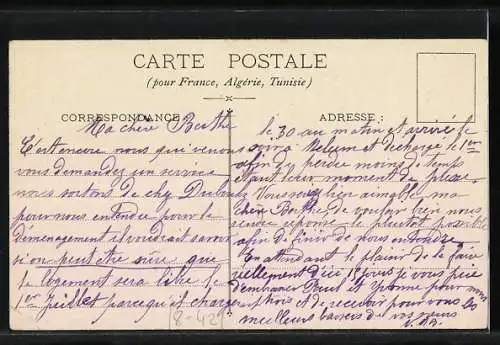 CARTE POSTALE
(pour France, Algérie, Tunisie)
CORRESPONDANCE
ADRESSE :
Ma chère Berthe
C'est encore nous qui venons
vous demander un service
nous sortons de chez
pour nous entendre pour le
déménagement il voudrait savoir
si on peut être sûre que
le logement sera libre le
1er Juillet parce qu'il charge
le 30 au matin et arrivé le
soir à Melun et décharge le 1er
afin de perdre moins de temps
étant leur moment de presse.
Vous seriez bien aimable ma
chère Berthe de vouloir bien nous
rendre réponse le plutôt possible
afin de finir de nous entendre
En attendant le plaisir de le faire
réellement d'ici 15 jours je vous prie
d'embrasser et Yvonne pour nous
et de recevoir pour vous les
meilleurs baisers de vos
8-42